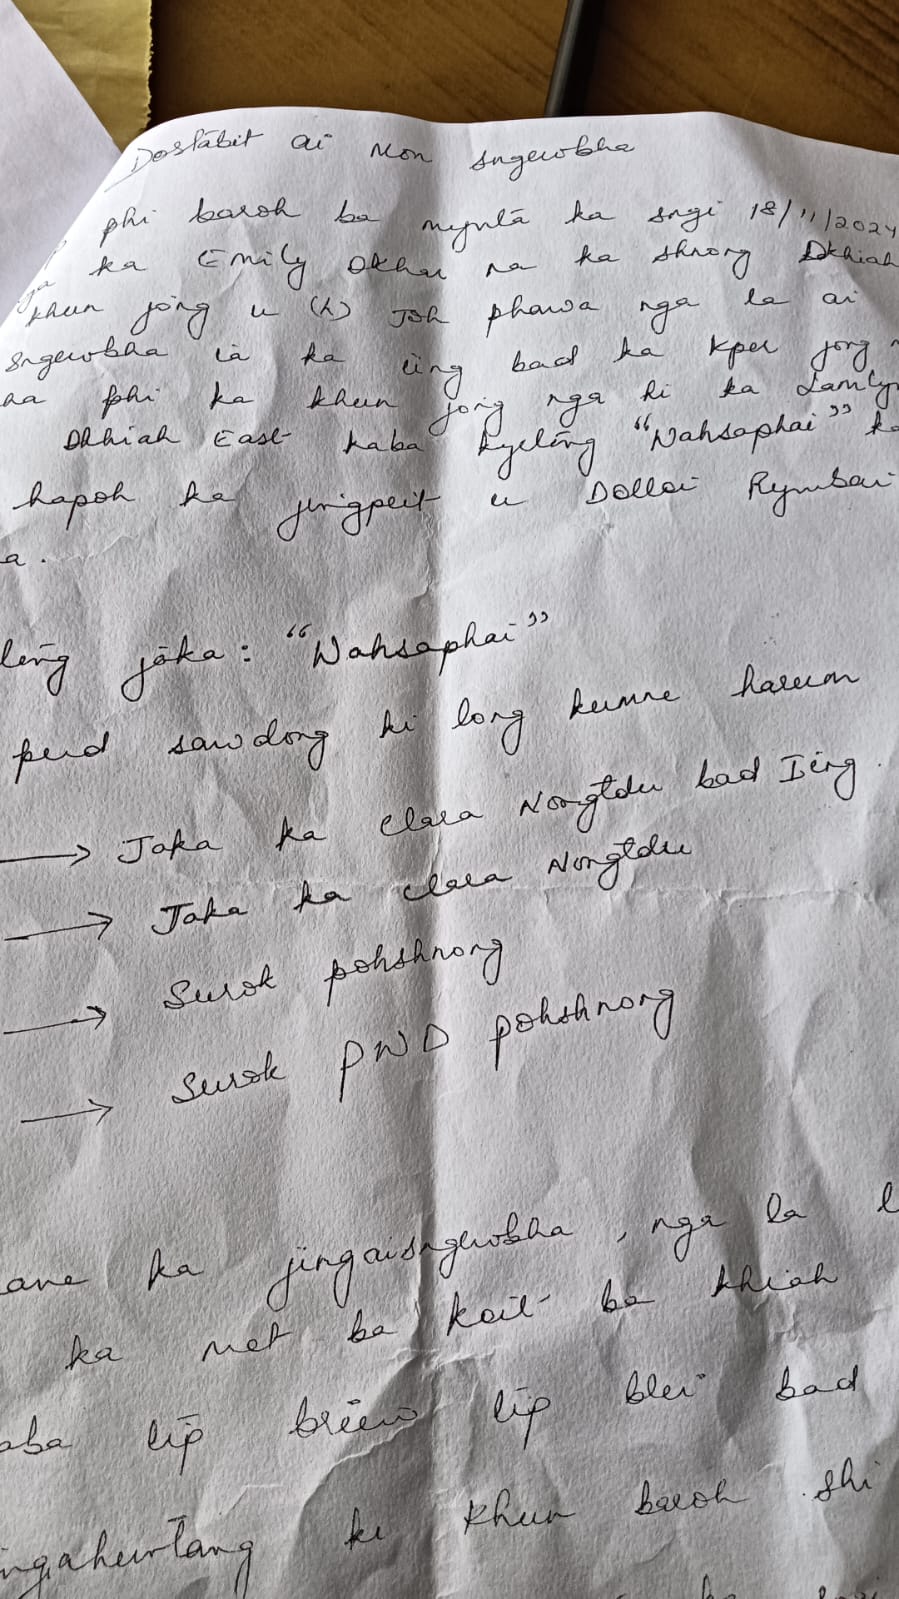 Dostabit ai Mon sngewbha
phi baroh ba mynta ka sngi 18/11/2024
ka Emily Dkhar na ka shnong Dkhiah
khun jong u (L) Joh phawa nga la ai
sngewbha ia ka iing bad ka kper jong
ha phi ka khun jong nga ki ka
Dkhiah East kaba kyrteng "Wahsaphai" ka
hapoh ka jingpeit u Dolloi Rymbai
a.
teng jaka: "Wahsaphai"
pud sawdong ki long kumne harum
→ Jaka ka clara Nongtdu bad Ieng
→ Jaka ka clara Nongtdu
→ Surok pohshnong
→ Surok PWD pohshnong
ane ka jingaisngewbha, nga la l
ka met ba koit ba khiah
aba tip briew tip blei bad
ngaheintang ki khun baroh shi
ka sngi